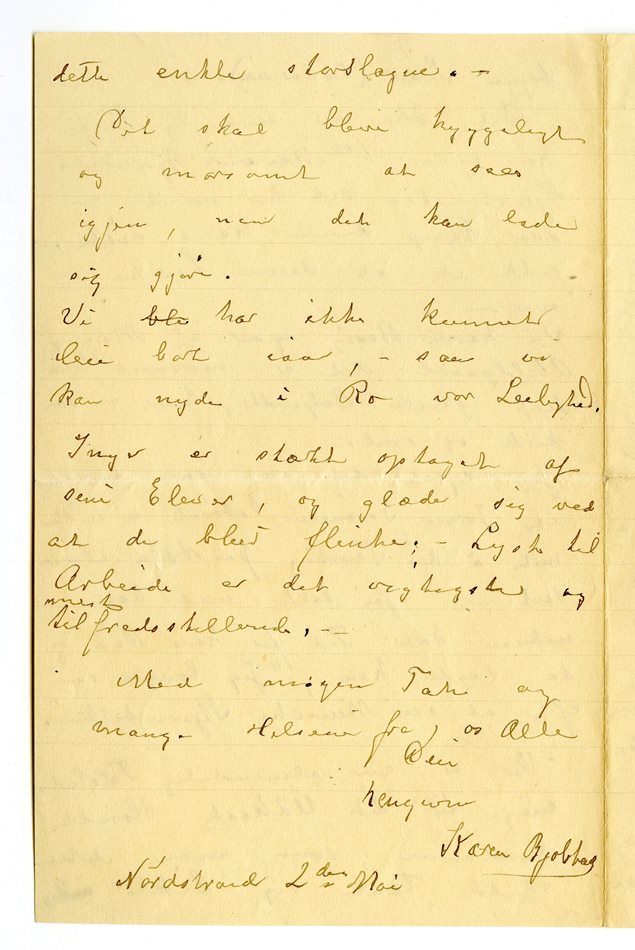 dette enkle storslagne. –
Det skal blive hyggeligt
og morsomt at sees
igjen, naar det kan lade
sig gjøre.
Vi ble har ikke kunnet
leie bort iaar, – saa vi
kan nyde i Ro vor Ledighed.
Inger er stærkt optaget af
sine Elever, og glæder sig ved
at de bliver flinke; – Lyst til
Arbeide er det vigtigste og
mest
tilfredsstillende. –
Med megen Tak og
mange Hilsener fra os Alle
Din
hengivne
Karen
Nordstrand 2den Mai